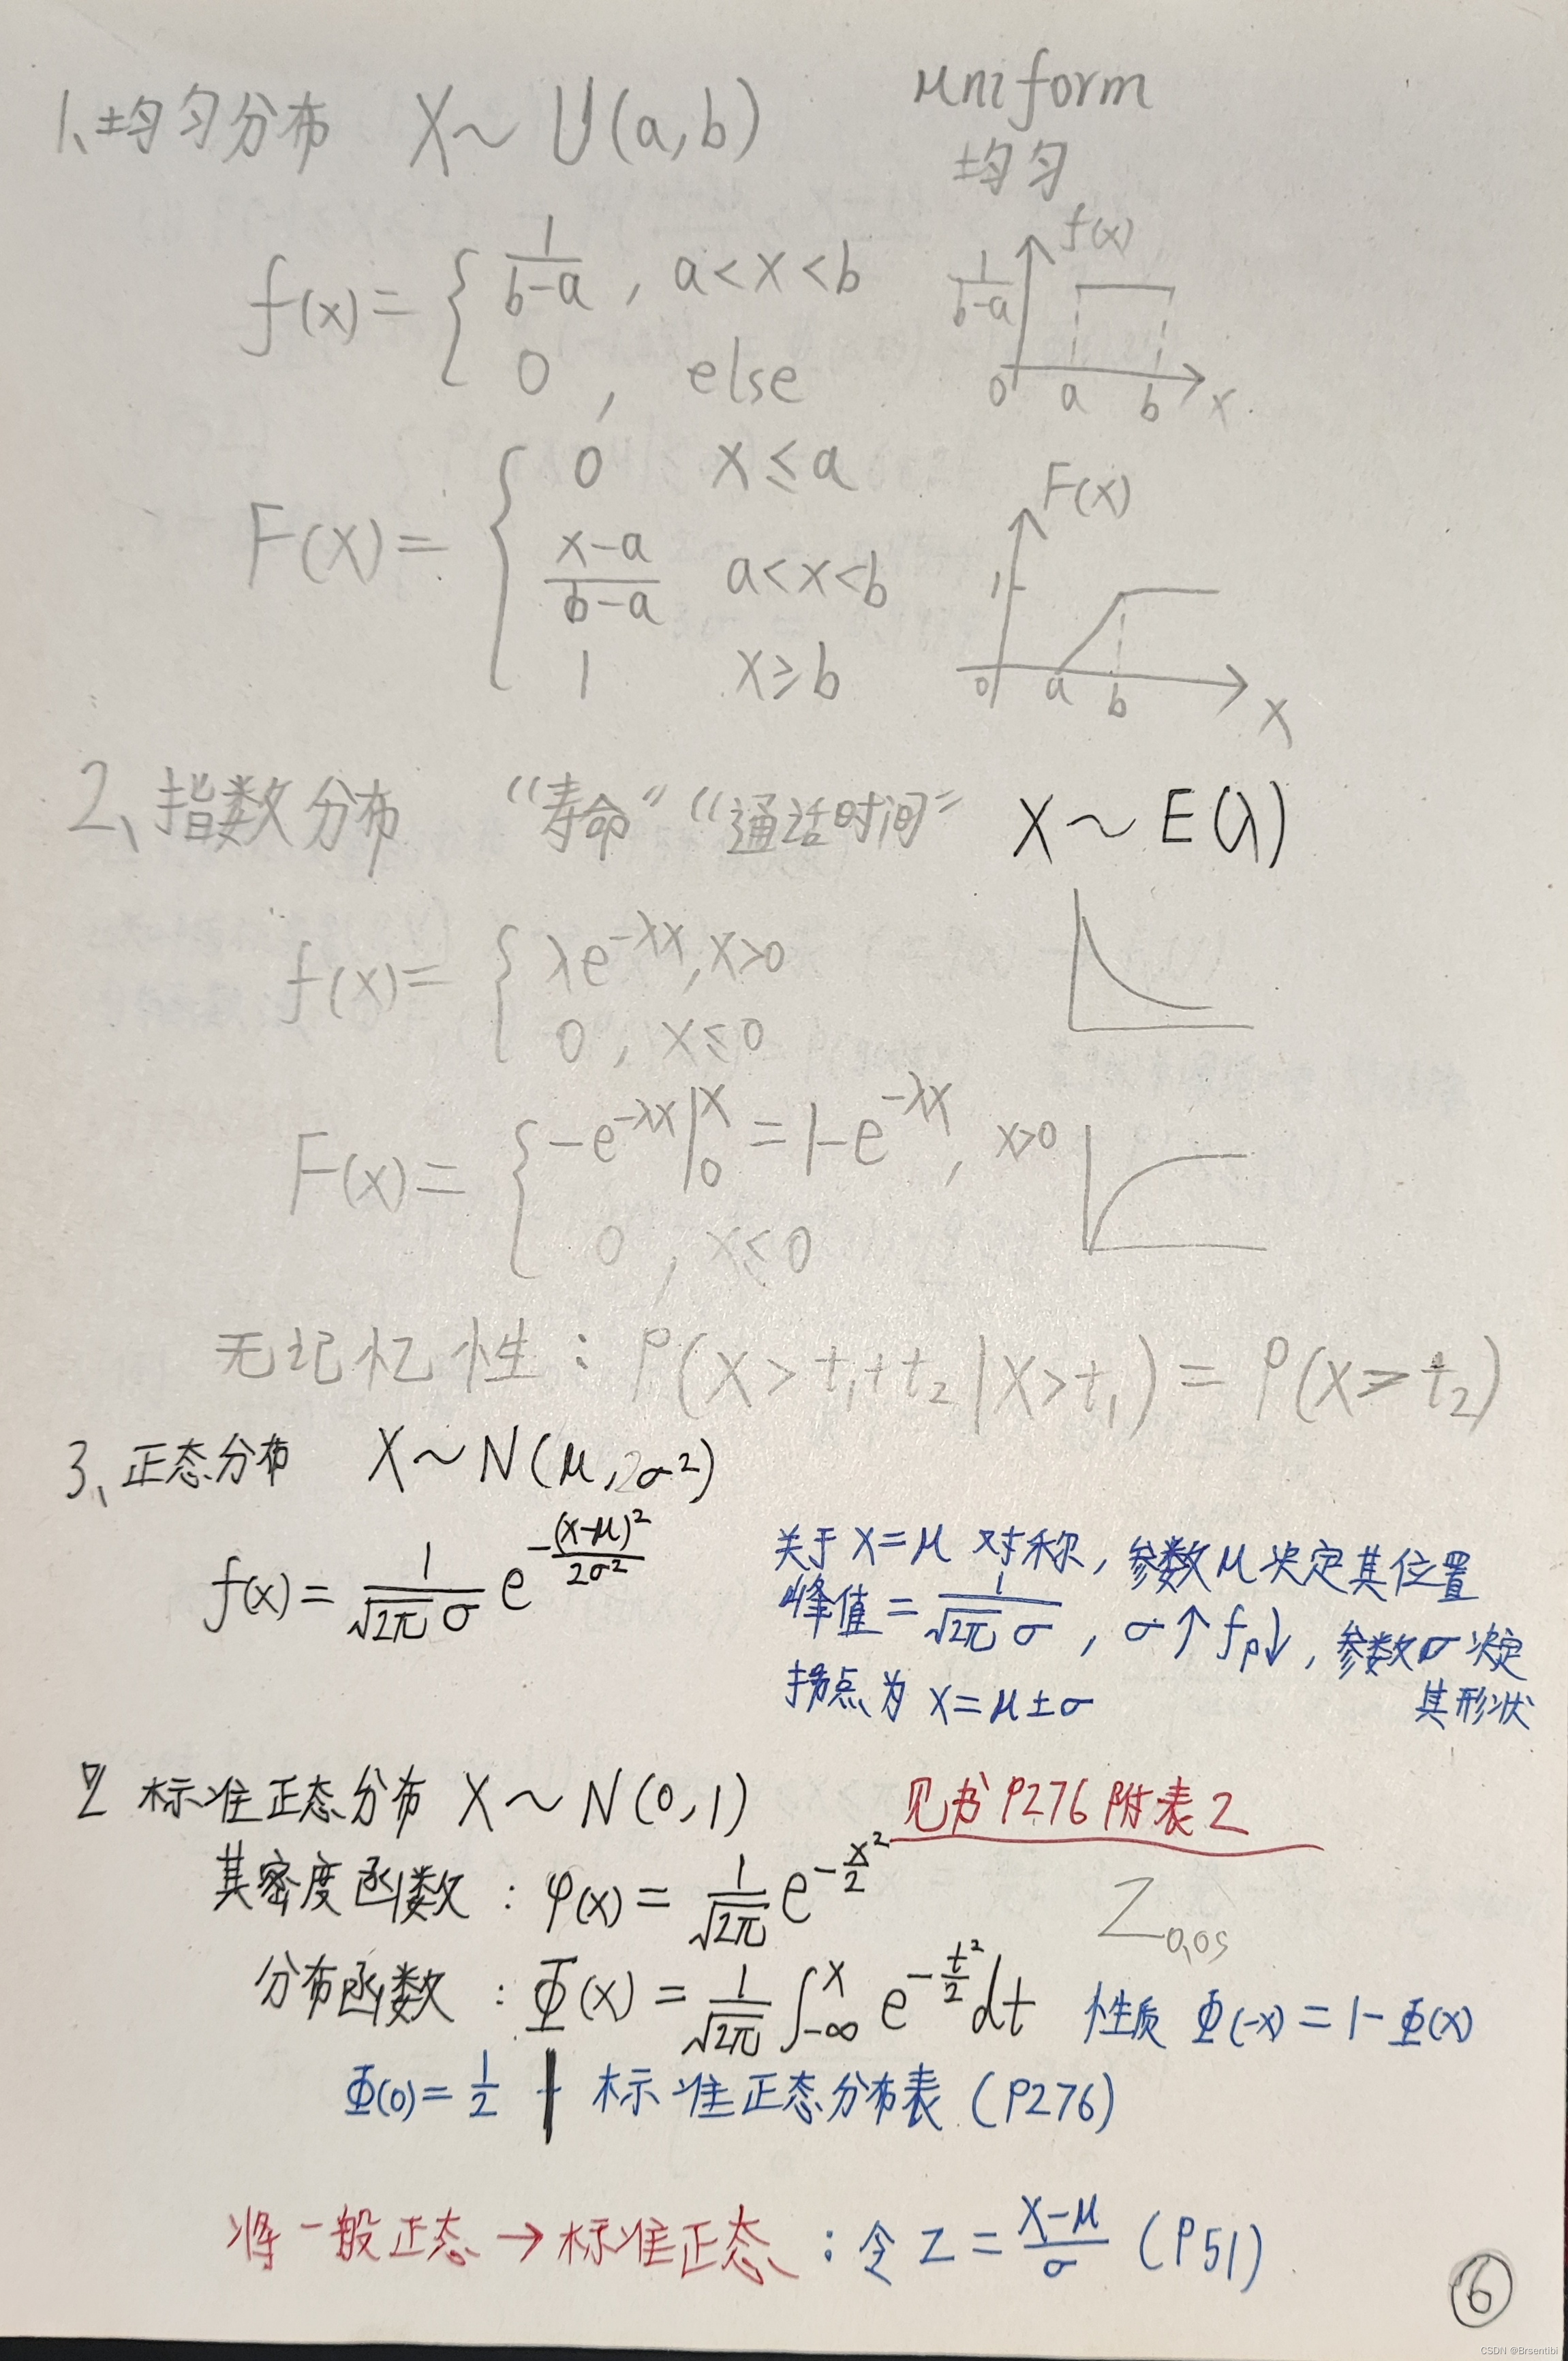 1、均匀分布 X~U(a,b) uniform
均匀
f(x)= { 1/(b-a) , a<x<b
0 , else
f(x)
1/(b-a)
0 a b x
F(x)= { 0 x≤a
(x-a)/(b-a) a<x<b
1 x≥b
F(x)
1
0 a b x
2、指数分布 “寿命” “通话时间” X~E(λ)
f(x)= { λe^{-λx}, x>0
0 , x≤0
F(x)= { -e^{-λx}|_0^x = 1-e^{-λx} , x>0
0 , x≤0
无记忆性: P(X>t₁+t₂|X>t₁)=P(X>t₂)
3、正态分布 X~N(μ,σ²)
f(x)= 1/(√2π σ) e^{-(x-μ)²/2σ²}
关于x=μ对称,参数μ决定其位置
峰值=1/(√2π σ) , σ↑ fp↓,参数σ决定
其形状
拐点为 x=μ±σ
标准正态分布 X~N(0,1) 见书P276附表2
其密度函数: φ(x)= 1/√2π e^{-x²/2}
Z_{0.05}
分布函数: Φ(x)= 1/√2π ∫_{-∞}^{x} e^{-t²/2}dt 性质 Φ(-x)=1-Φ(x)
Φ(0)=1/2 标准正态分布表(P276)
将一般正态→标准正态:令Z=(X-μ)/σ (P51)
6
CSDN @Brsentibi